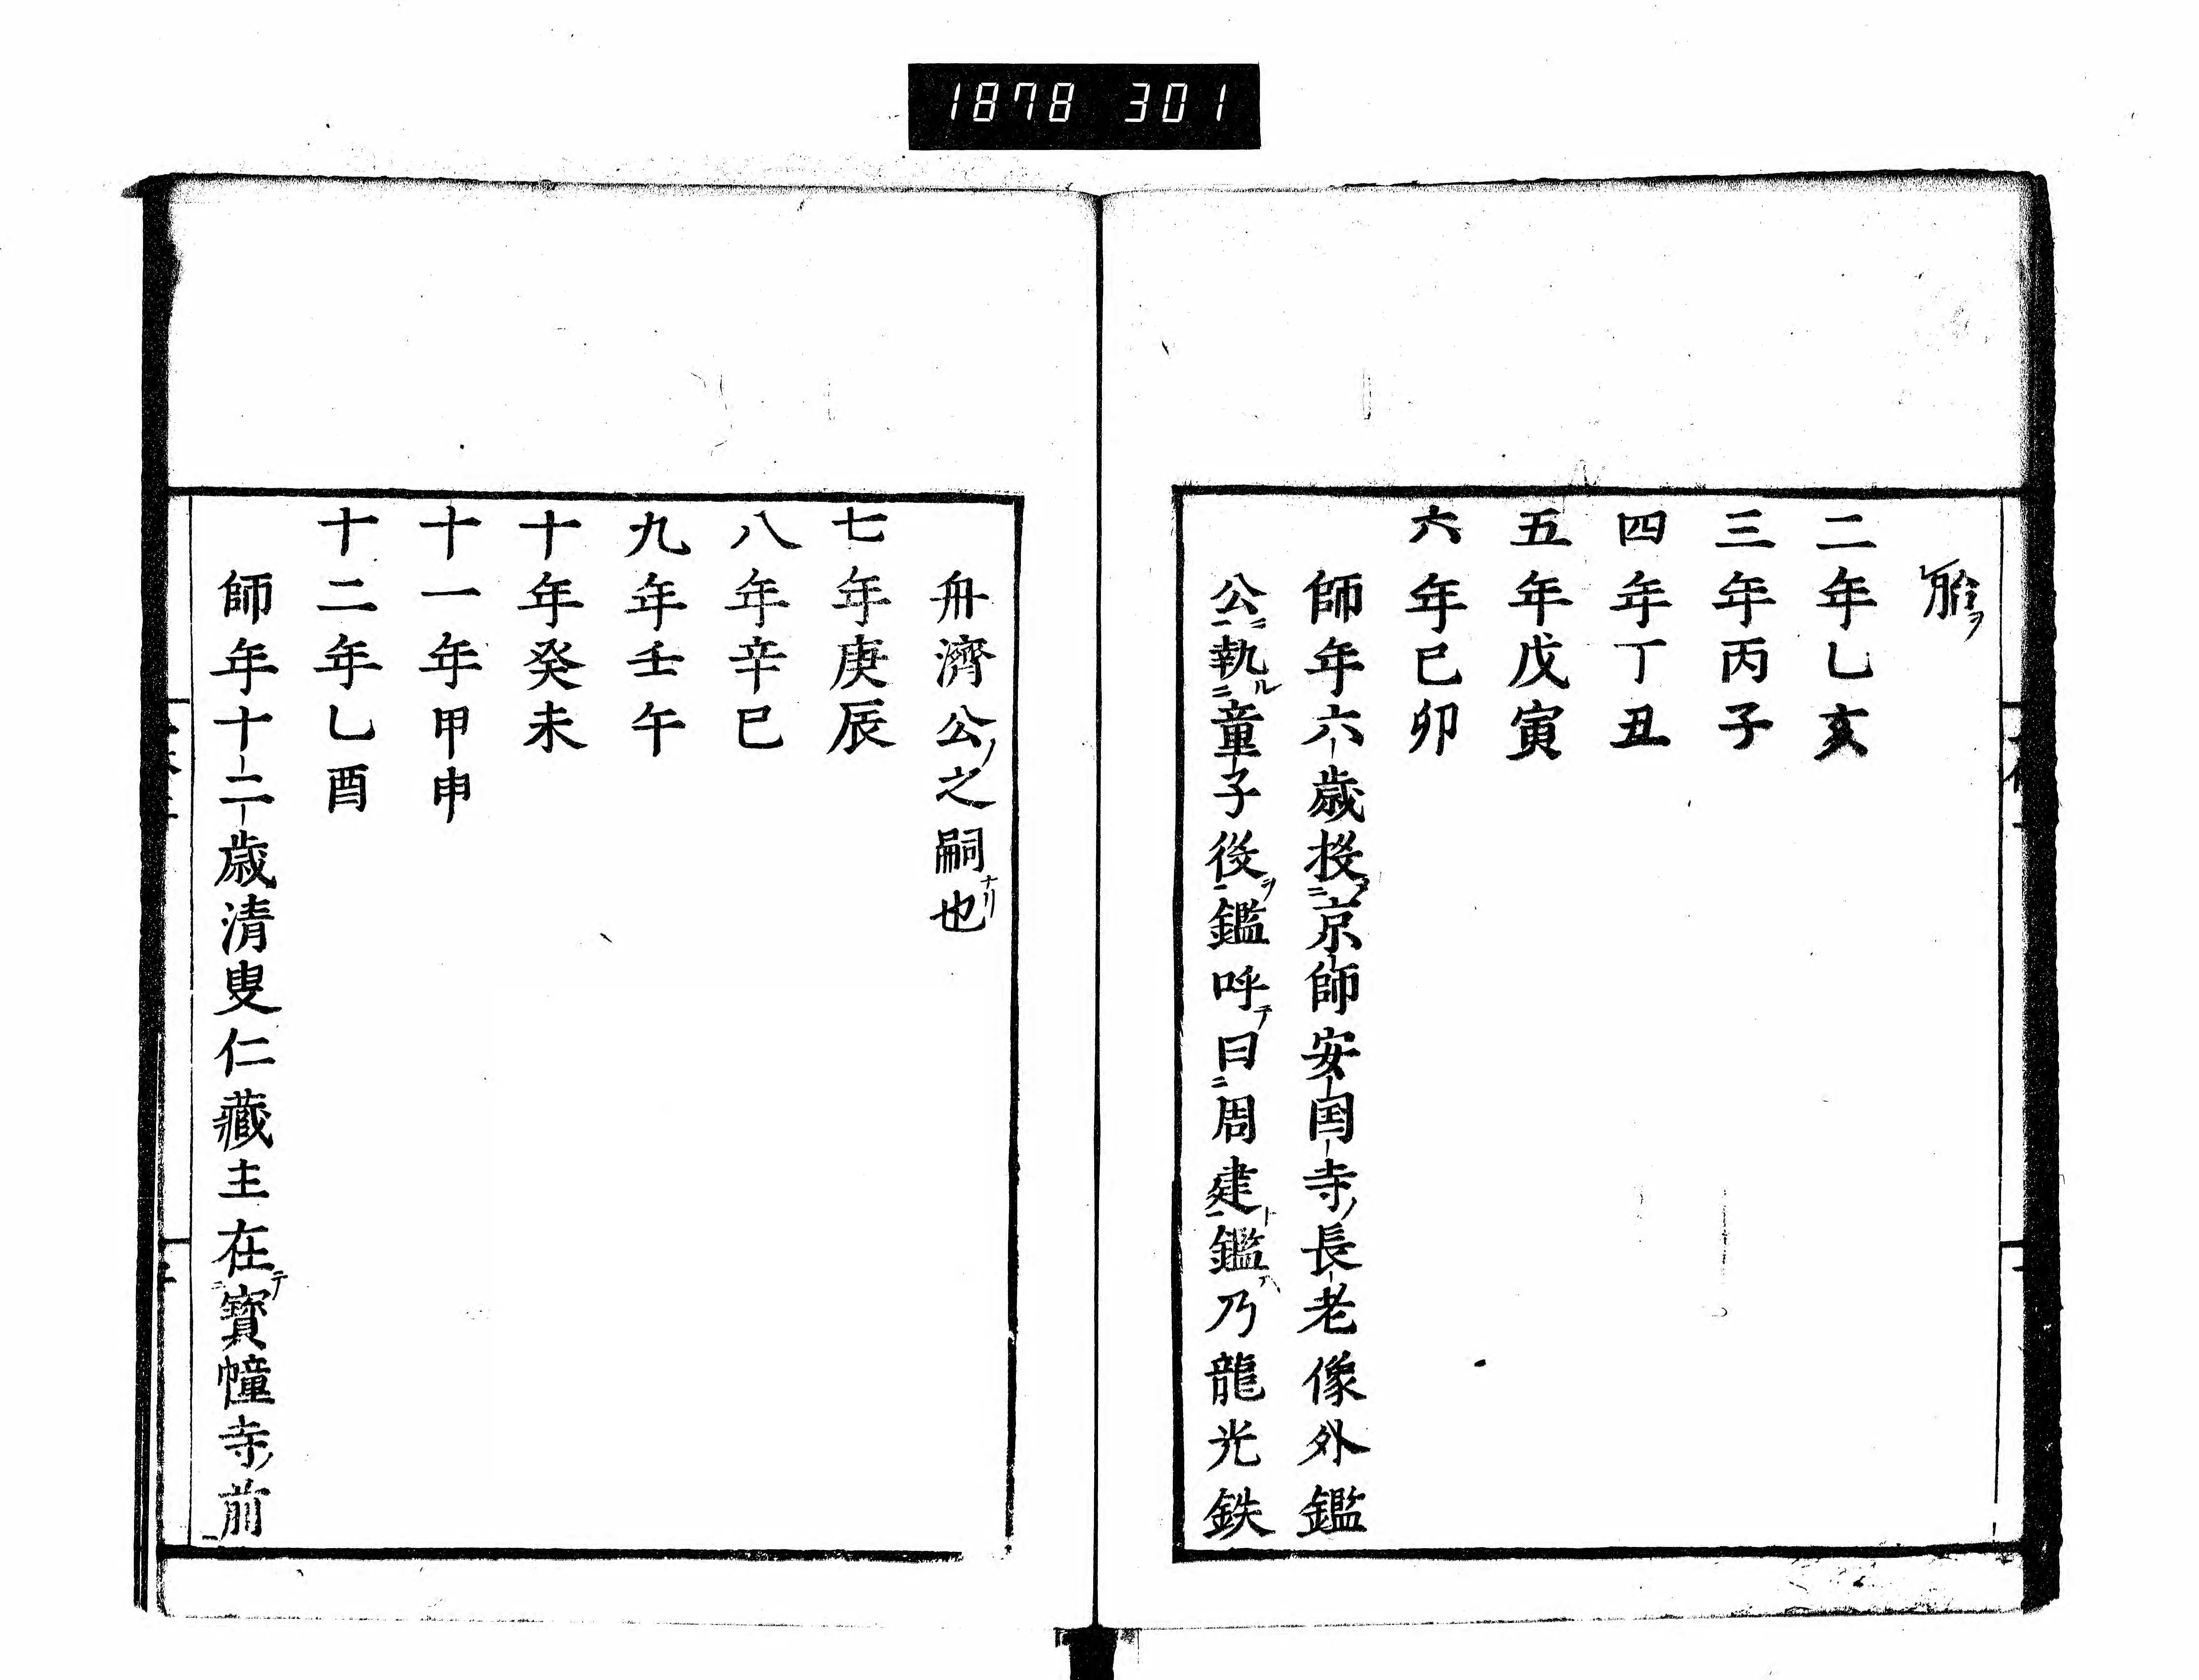 1878 301
二年乙亥
三年丙子
四年丁丑
五年戊寅
六年己卯
師年六歳投京師安囯寺長老像外鑑
公執童子役鑑呼曰周建鑑乃龍光鉄
舟濟公之嗣也
七年庚辰
八年辛巳
九年壬午
十年癸未
十一年甲申
十二年乙酉
師年十二歳清叟仁藏主在寳幢寺前